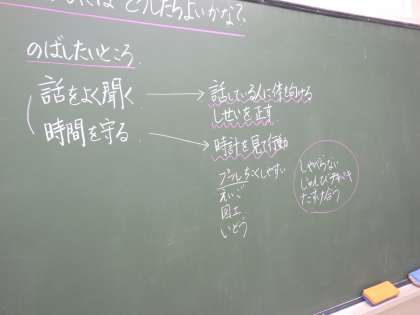 にはどうしたらよいかな？
のばしたいところ
話をよく聞く → 話している人に体を向ける
しせいを正す
時間を守る → 時計を見て行動
プール ちこくしやすい
えいご
図工
いどう
しゃべらない
じゅんびテキパキ
たすけ合う